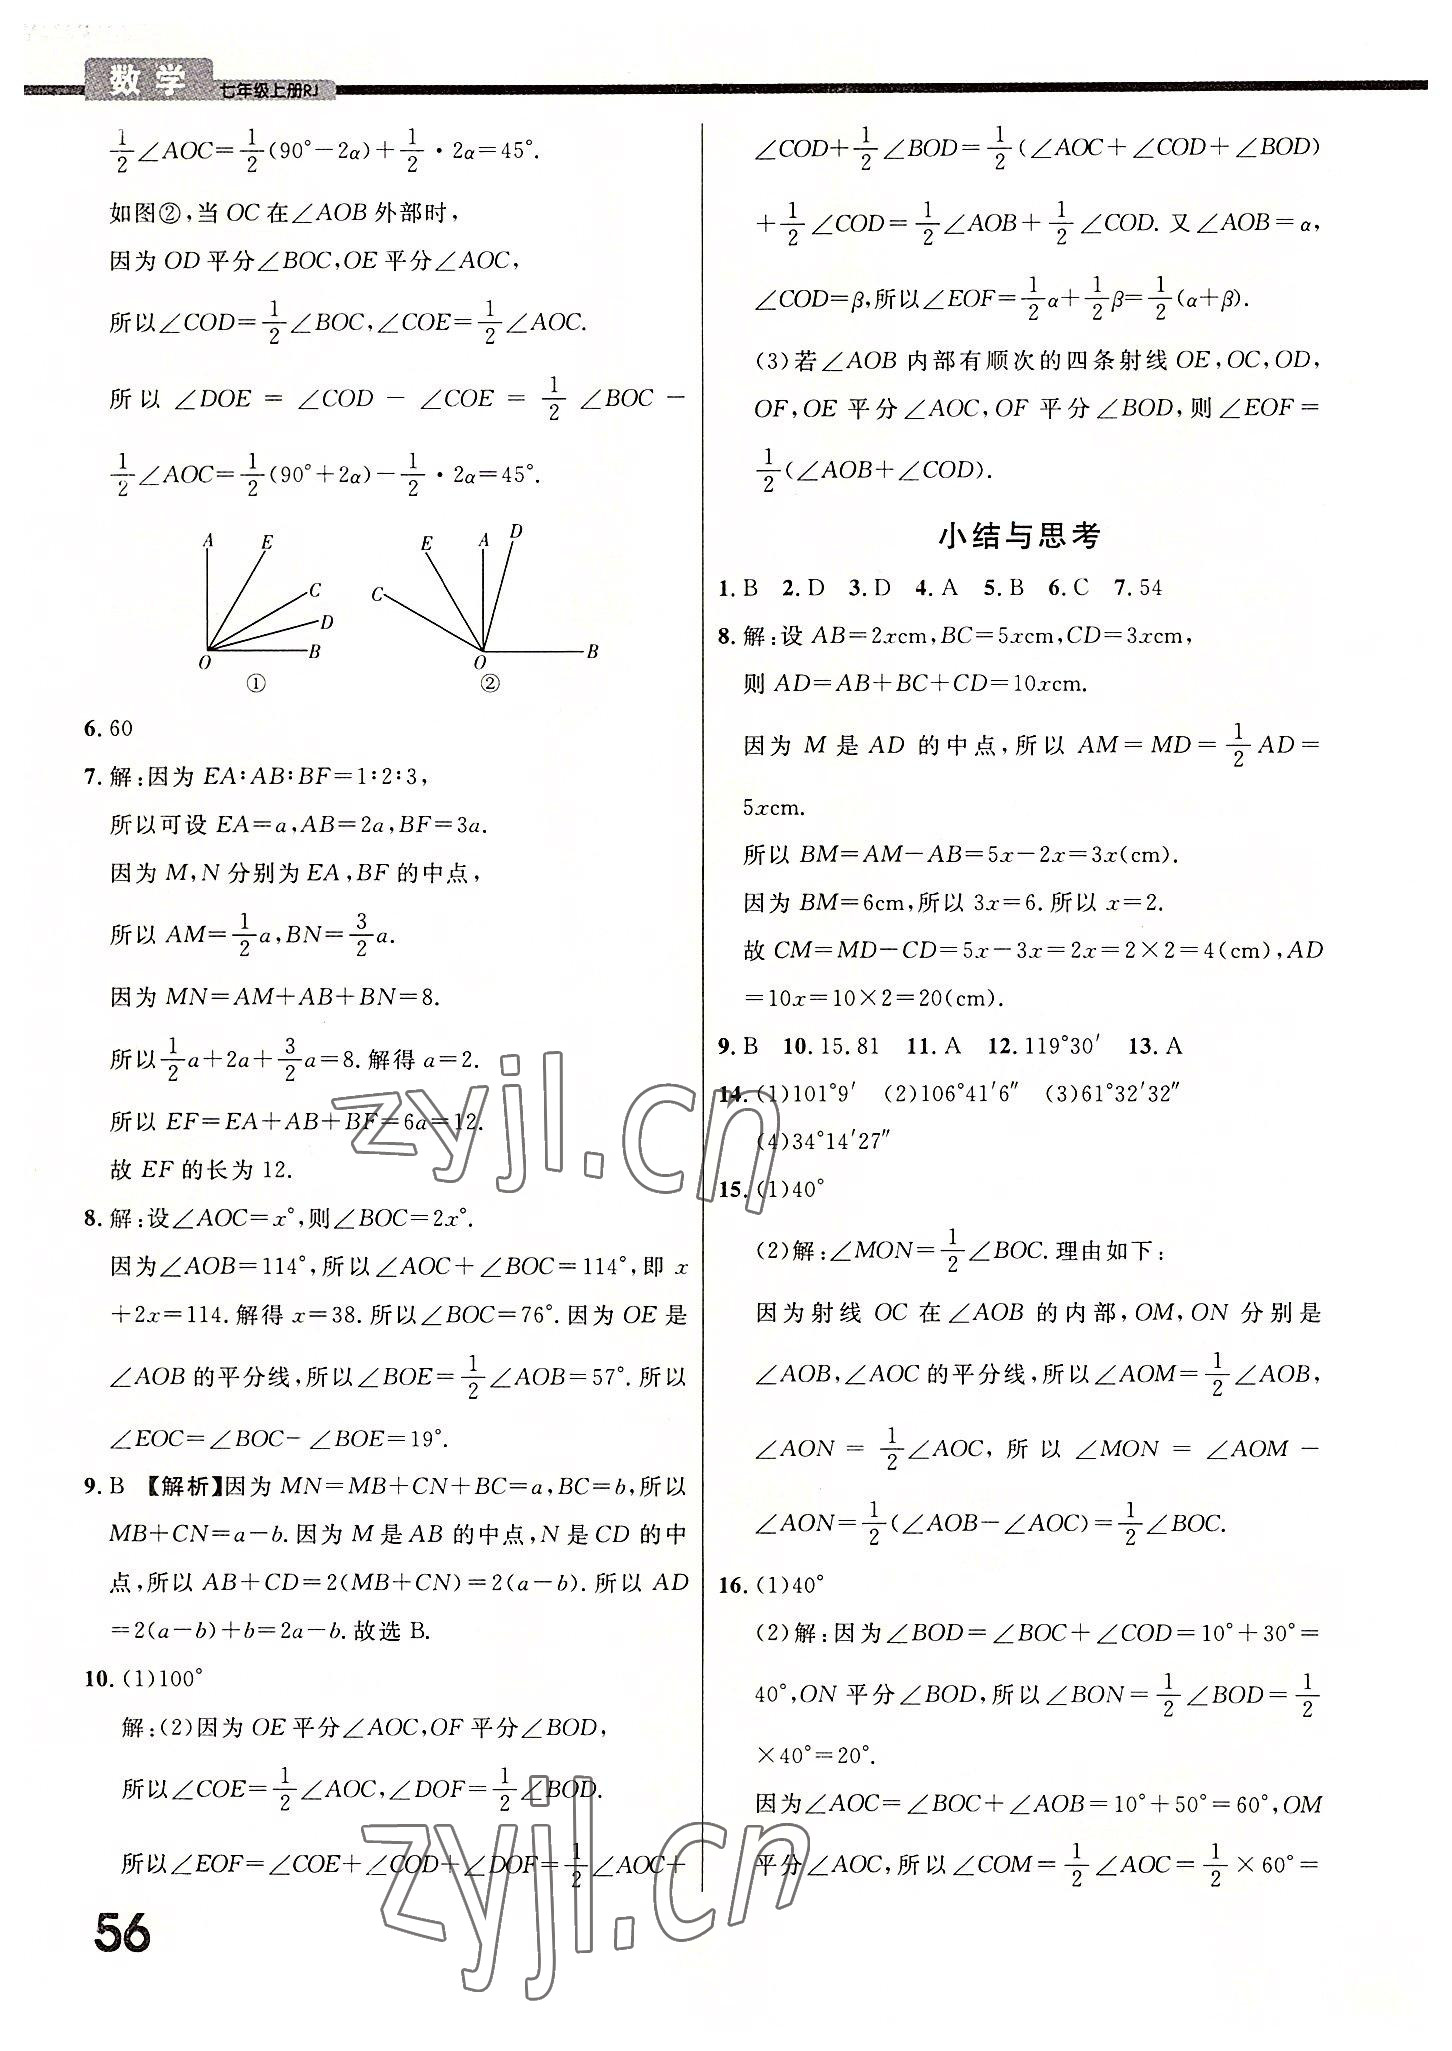 数学
七年级上册RJ
1/2∠AOC=1/2(90°-2α)+1/2·2α=45°.
如图②,当OC在∠AOB外部时,
因为OD平分∠BOC,OE平分∠AOC,
所以∠COD=1/2∠BOC,∠COE=1/2∠AOC.
所以∠DOE=∠COD-∠COE=1/2∠BOC-
1/2∠AOC=1/2(90°+2α)-1/2·2α=45°.
A E C D B O ①
E A D C B O ②
6. 60
7. 解:因为EA∶AB∶BF=1∶2∶3,
所以可设EA=a,AB=2a,BF=3a.
因为M,N分别为EA,BF的中点,
所以AM=1/2a,BN=3/2a.
因为MN=AM+AB+BN=8.
所以1/2a+2a+3/2a=8.解得a=2.
所以EF=EA+AB+BF=6a=12.
故EF的长为12.
8. 解:设∠AOC=x°,则∠BOC=2x°.
因为∠AOB=114°,所以∠AOC+∠BOC=114°,即x
+2x=114.解得x=38.所以∠BOC=76°.因为OE是
∠AOB的平分线,所以∠BOE=1/2∠AOB=57°.所以
∠EOC=∠BOC-∠BOE=19°.
9. B 【解析】因为MN=MB+CN+BC=a,BC=b,所以
MB+CN=a-b.因为M是AB的中点,N是CD的中
点,所以AB+CD=2(MB+CN)=2(a-b).所以AD
=2(a-b)+b=2a-b.故选B.
10. (1)100°
解:(2)因为OE平分∠AOC,OF平分∠BOD,
所以∠COE=1/2∠AOC,∠DOF=1/2∠BOD.
所以∠EOF=∠COE+∠COD+∠DOF=1/2∠AOC+
∠COD+1/2∠BOD=1/2(∠AOC+∠COD+∠BOD)
+1/2∠COD=1/2∠AOB+1/2∠COD.又∠AOB=α,
∠COD=β,所以∠EOF=1/2α+1/2β=1/2(α+β).
(3)若∠AOB内部有顺次的四条射线OE,OC,OD,
OF,OE平分∠AOC,OF平分∠BOD,则∠EOF=
1/2(∠AOB+∠COD).
小结与思考
1. B 2. D 3. D 4. A 5. B 6. C 7. 54
8. 解:设AB=2xcm,BC=5xcm,CD=3xcm,
则AD=AB+BC+CD=10xcm.
因为M是AD的中点,所以AM=MD=1/2AD=
5xcm.
所以BM=AM-AB=5x-2x=3x(cm).
因为BM=6cm,所以3x=6.所以x=2.
故CM=MD-CD=5x-3x=2x=2×2=4(cm),AD
=10x=10×2=20(cm).
9. B 10. 15.81 11. A 12. 119°30′ 13. A
14. (1)101°9′ (2)106°41′6″ (3)61°32′32″
(4)34°14′27″
15. (1)40°
(2)解:∠MON=1/2∠BOC.理由如下:
因为射线OC在∠AOB的内部,OM,ON分别是
∠AOB,∠AOC的平分线,所以∠AOM=1/2∠AOB,
∠AON=1/2∠AOC,所以∠MON=∠AOM-
∠AON=1/2(∠AOB-∠AOC)=1/2∠BOC.
16. (1)40°
(2)解:因为∠BOD=∠BOC+∠COD=10°+30°=
40°,ON平分∠BOD,所以∠BON=1/2∠BOD=1/2
×40°=20°.
因为∠AOC=∠BOC+∠AOB=10°+50°=60°,OM
平分∠AOC,所以∠COM=1/2∠AOC=1/2×60°=
zyjl.cn
zyjl.cn
56